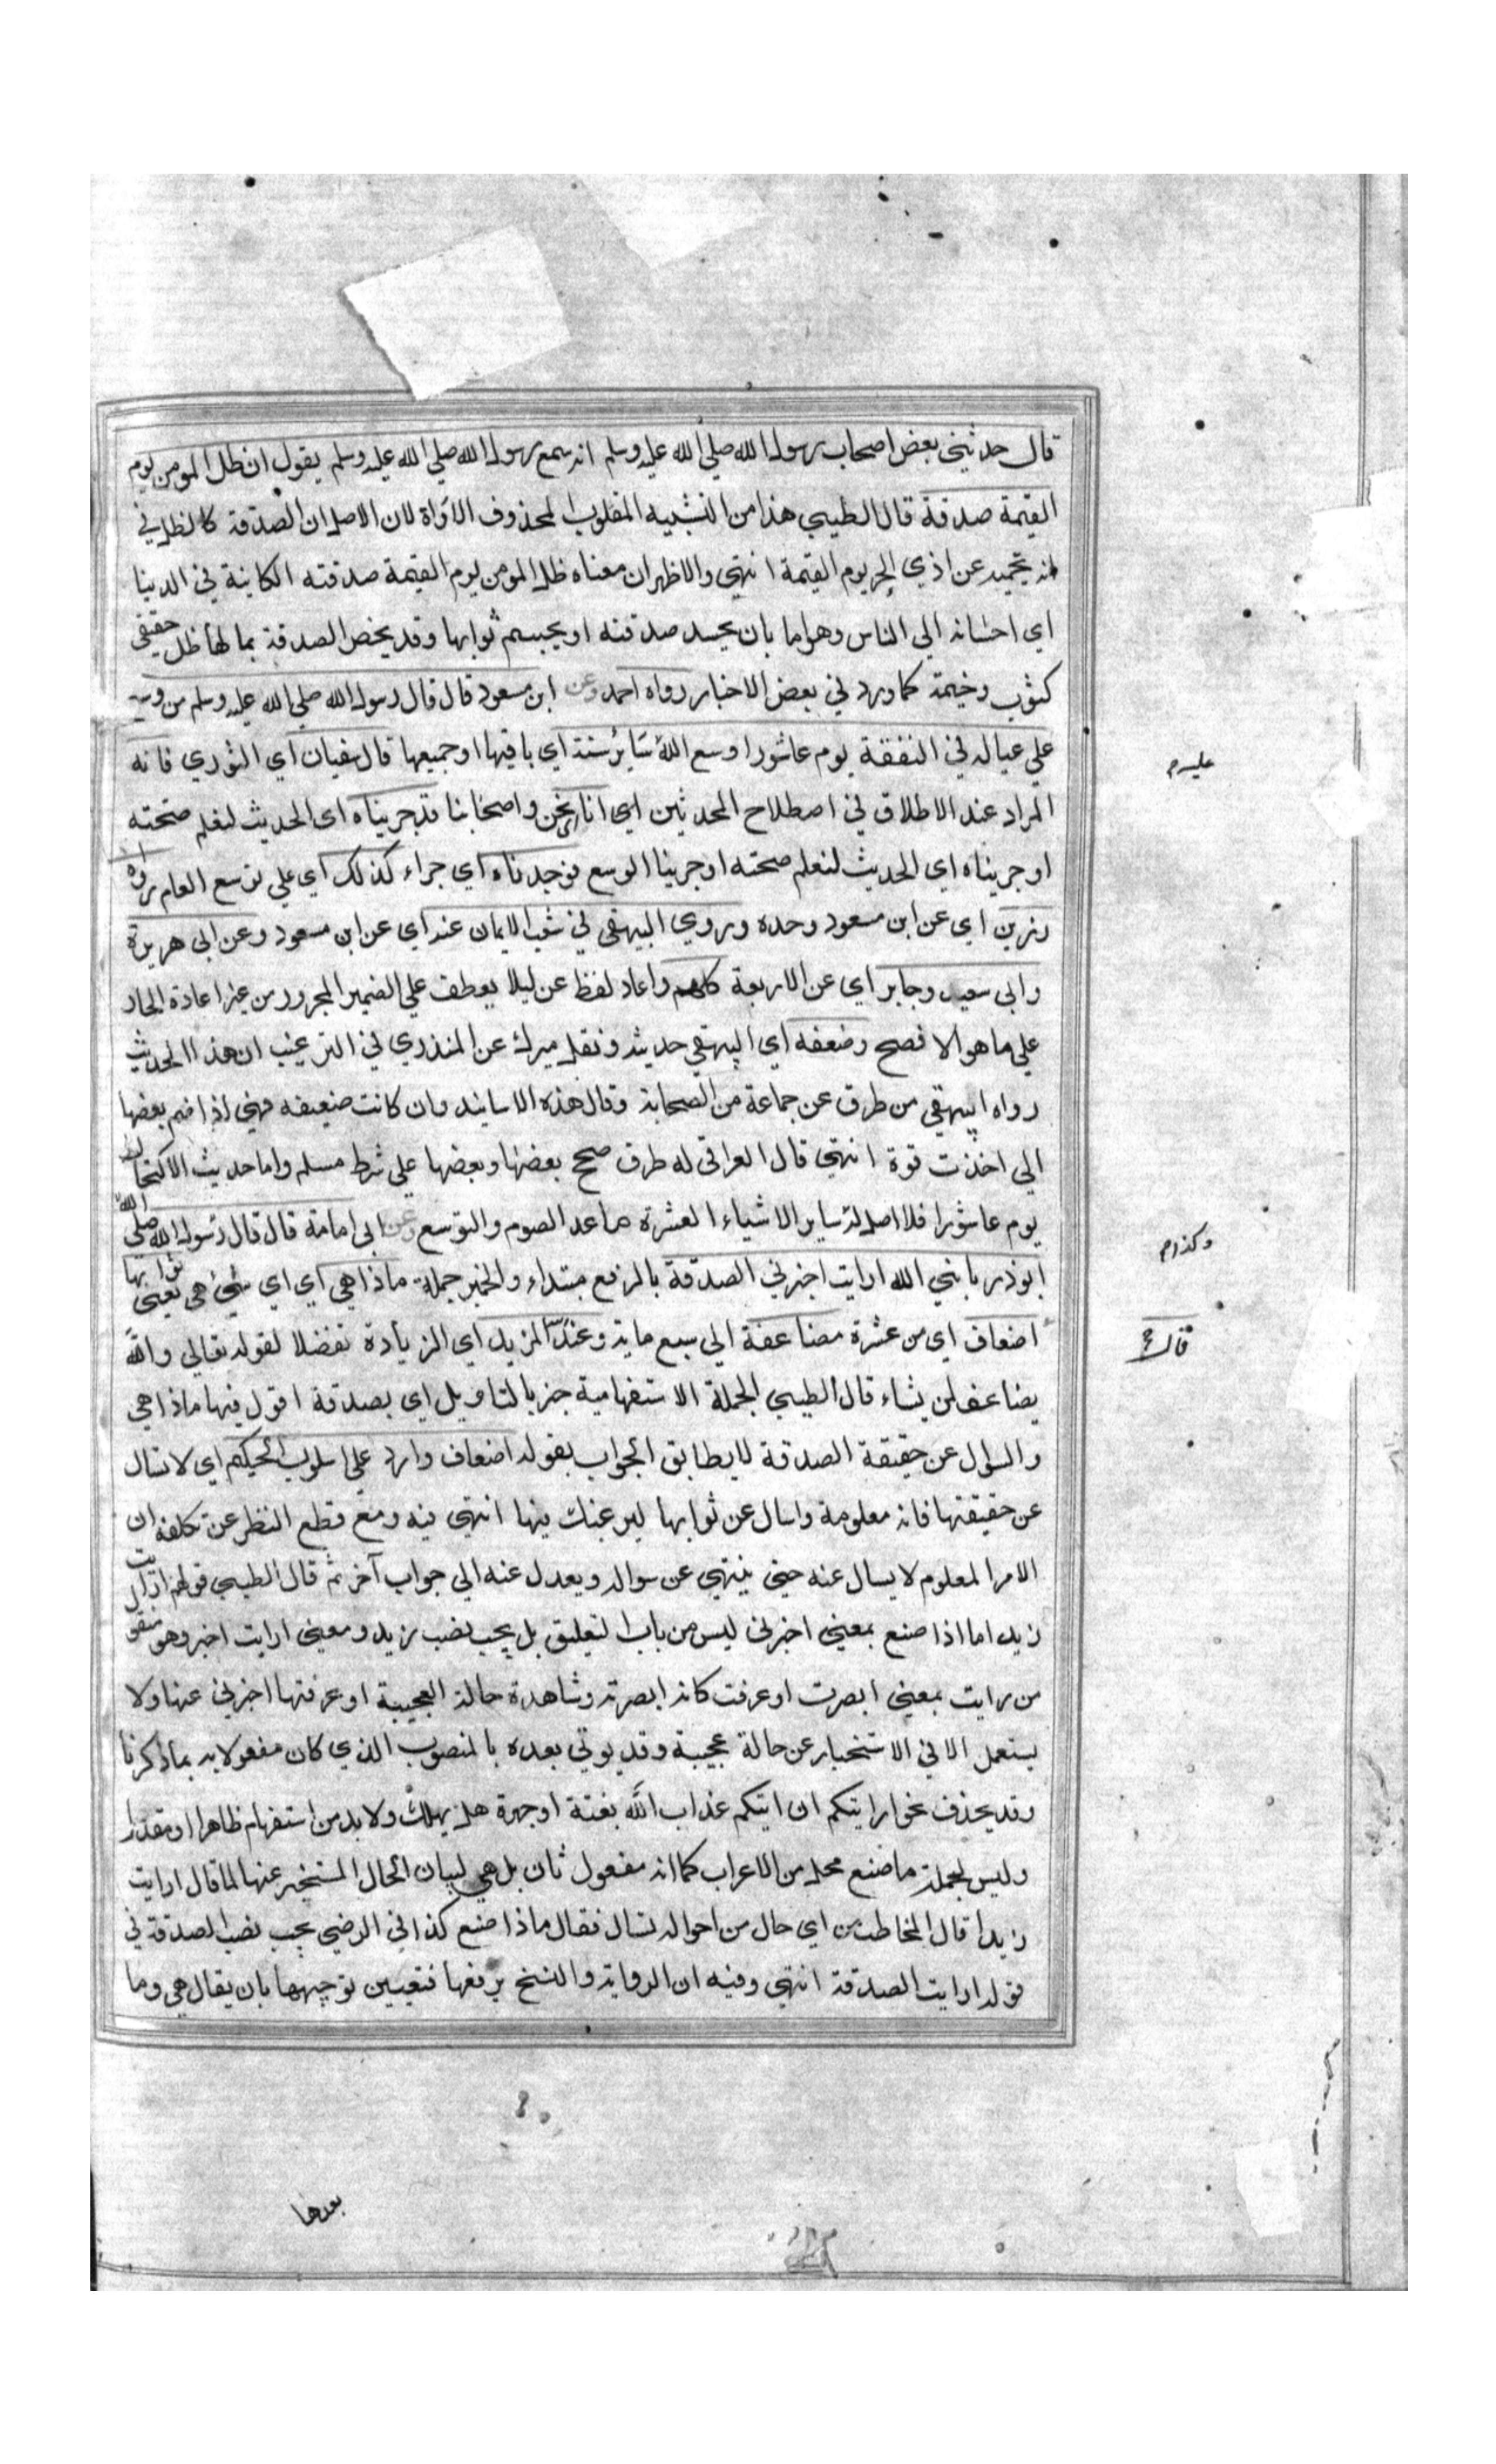 قال حدثني بعض اصحاب رسول الله صلي الله عليه وسلم انه سمع رسول الله صلي الله عليه وسلم يقول ان ظل المومن يوم
القيمة صدقة قال الطيبي هذا من التشبيه المقلوب المحذوف الاداة لان الاصل ان الصدقة كالظل في
انه يحميه عن اذي الحر يوم القيمة انتهي والاظهر ان معناه ظل المومن يوم القيمة صدقته الكاينة في الدينا
اي احسانه الي الناس وهو اما بان يجسد صدقته او يجسم ثوابها وقد يخص الصدقة بما لها ظل حقيقي
كثوب وخيمة كما ورد في بعض الاخبار رواه احمد وعن ابن مسعود قال قال رسول الله صلي الله عليه وسلم من وسع
علي عياله في النفقة يوم عاشورا وسع الله سَايرُ سنته اي باقيها او جميعها قال سفيان اي الثوري فانه
المراد عند الاطلاق في اصطلاح المحدثين اي انا نحن واصحابنا قد جربناه اي الحديث لنعلم صحته
او جربناه اي الحديث لنعلم صحته او جربنا الوسع فوجدناه اي جراء كذلك اي علي توسع العام رواه
رزين اي عن ابن مسعود وحده وروي البيهقي في شعب الايمان عنه اي عن ابن مسعود وعن ابي هريرة
وابي سعيد وجابر اي عن الاربعة كلهم واعاد لفظ عن ليلا يعطف علي الضمير المجرور من غير اعادة الجار
علي ما هو الافصح وضعفه اي البيهقي حديثه ونقل ميرك عن المنذري في الترغيب ان هذا الحديث
رواه البيهقي من طرق عن جماعة من الصحابة وقال هذه الاسانيد وان كانت ضعيفه فهي اذا ضم بعضها
الي اخذت قوة انتهي قال العراقي له طرق صحح بعضها وبعضها علي شرط مسلم واما حديث الاكتحال
يوم عاشورا فلا اصل له سایر الاشياء العشرة ما عدا الصوم والتوسع وعن ابي امامة قال قال رسول الله صلي الله
ابوذر يا نبي الله ارايت اخبرني الصدقة بالرفع مبتداء والخبر جملة ماذا هي اي اي شئ هي يعني ثوابها
اضعاف اي من عشرة مضاعفة الي سبع ماية وعند الله المزيد اي الزيادة تفضلا لقوله تعالي والله
يضاعف لمن يشاء قال الطيبي الجملة الاستفهامية خبر بالتاويل اي بصدقة اقول فيها ماذا هي
والسوال عن حقيقة الصدقة لا يطابق الجواب بقوله اضعاف وارد علي اسلوب الحكيم اي لا تسال
عن حقيقتها فانه معلومة واسال عن ثوابها ليرغبك فيها انتهي فيه ومع قطع النظر عن تكلفه ان
الامر المعلوم لا يسال عنه حتي ينتهي عن سواله ويعدل عنه الي جواب آخر ثم قال الطيبي قولهم ارايت
زيد اما اذا صنع بمعني اخبرني ليس من باب التعليق بل يجب نصب زيد ومعني ارايت اخبر وهو منقو
من رايت بمعني ابصرت او عرفت كانه ابصرته وشاهدة حالة العجيبة او عرفتها اخبرني عنها ولا
يستعمل الا في الاستخبار عن حالة عجيبة وقد يوتي بعده بالمنصوب الذي كان مفعولا به بما ذكرنا
وقد يحذف نحو ارايتكم ان اتيكم عذاب الله بغتة او جهرة هل يهلك ولا بد من استفهام ظاهرا او مقدرا
وليس لجملة ما صنع محل من الاعراب كما انه مفعول ثان بل هي لبيان الحال المستخبر عنها لما قال ارايت
زيدا قال المخاطب من اي حال من احواله تسال فقال ماذا صنع كذا في الرضي يجب نصب الصدقة في
قوله ارايت الصدقة انتهي وفيه ان الرواية والنسخ برفعها فتعيين توجيهها بان يقال هي وما
بعدها
عليه م
وكذا م
قال